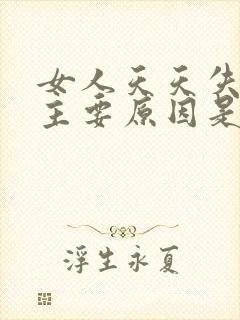 女人天天失
主要原因是
浮生永夏